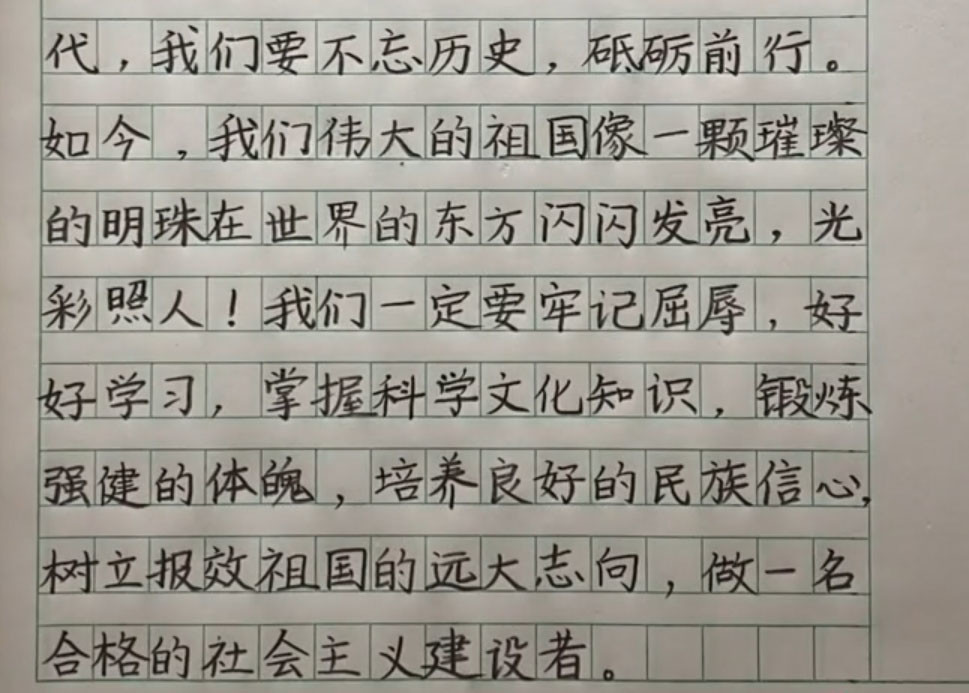 代，我们要不忘历史，砥砺前行。
如今，我们伟大的祖国像一颗璀璨
的明珠在世界的东方闪闪发亮，光
彩照人！我们一定要牢记屈辱，好
好学习，掌握科学文化知识，锻炼
强健的体魄，培养良好的民族信心，
树立报效祖国的远大志向，做一名
合格的社会主义建设者。